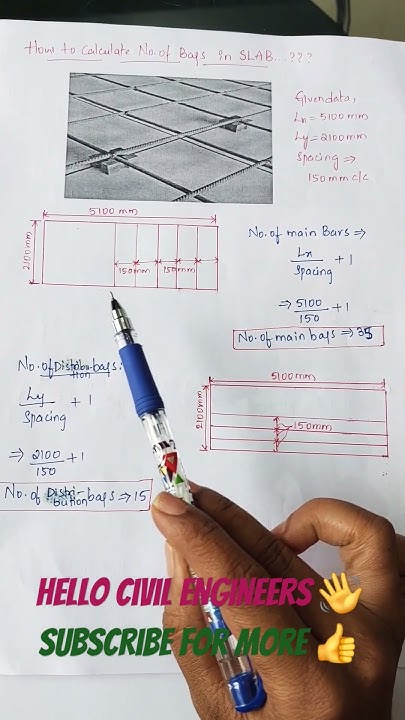 How to Calculate No. of Bars in SLAB...???
Given data,
Lx = 5100 mm
Ly = 2100 mm
Spacing ⇒
150 mm c/c
5100 mm
2100 mm
150 mm
150 mm
No. of main Bars ⇒
Lx/Spacing + 1
⇒ 5100/150 + 1
No. of main bars ⇒ 35
No. of Distribution bars:
Ly/Spacing + 1
⇒ 2100/150 + 1
No. of Distribution bars ⇒ 15
5100 mm
2100 mm
150 mm
HELLO CIVIL ENGINEERS 👋
SUBSCRIBE FOR MORE 👍